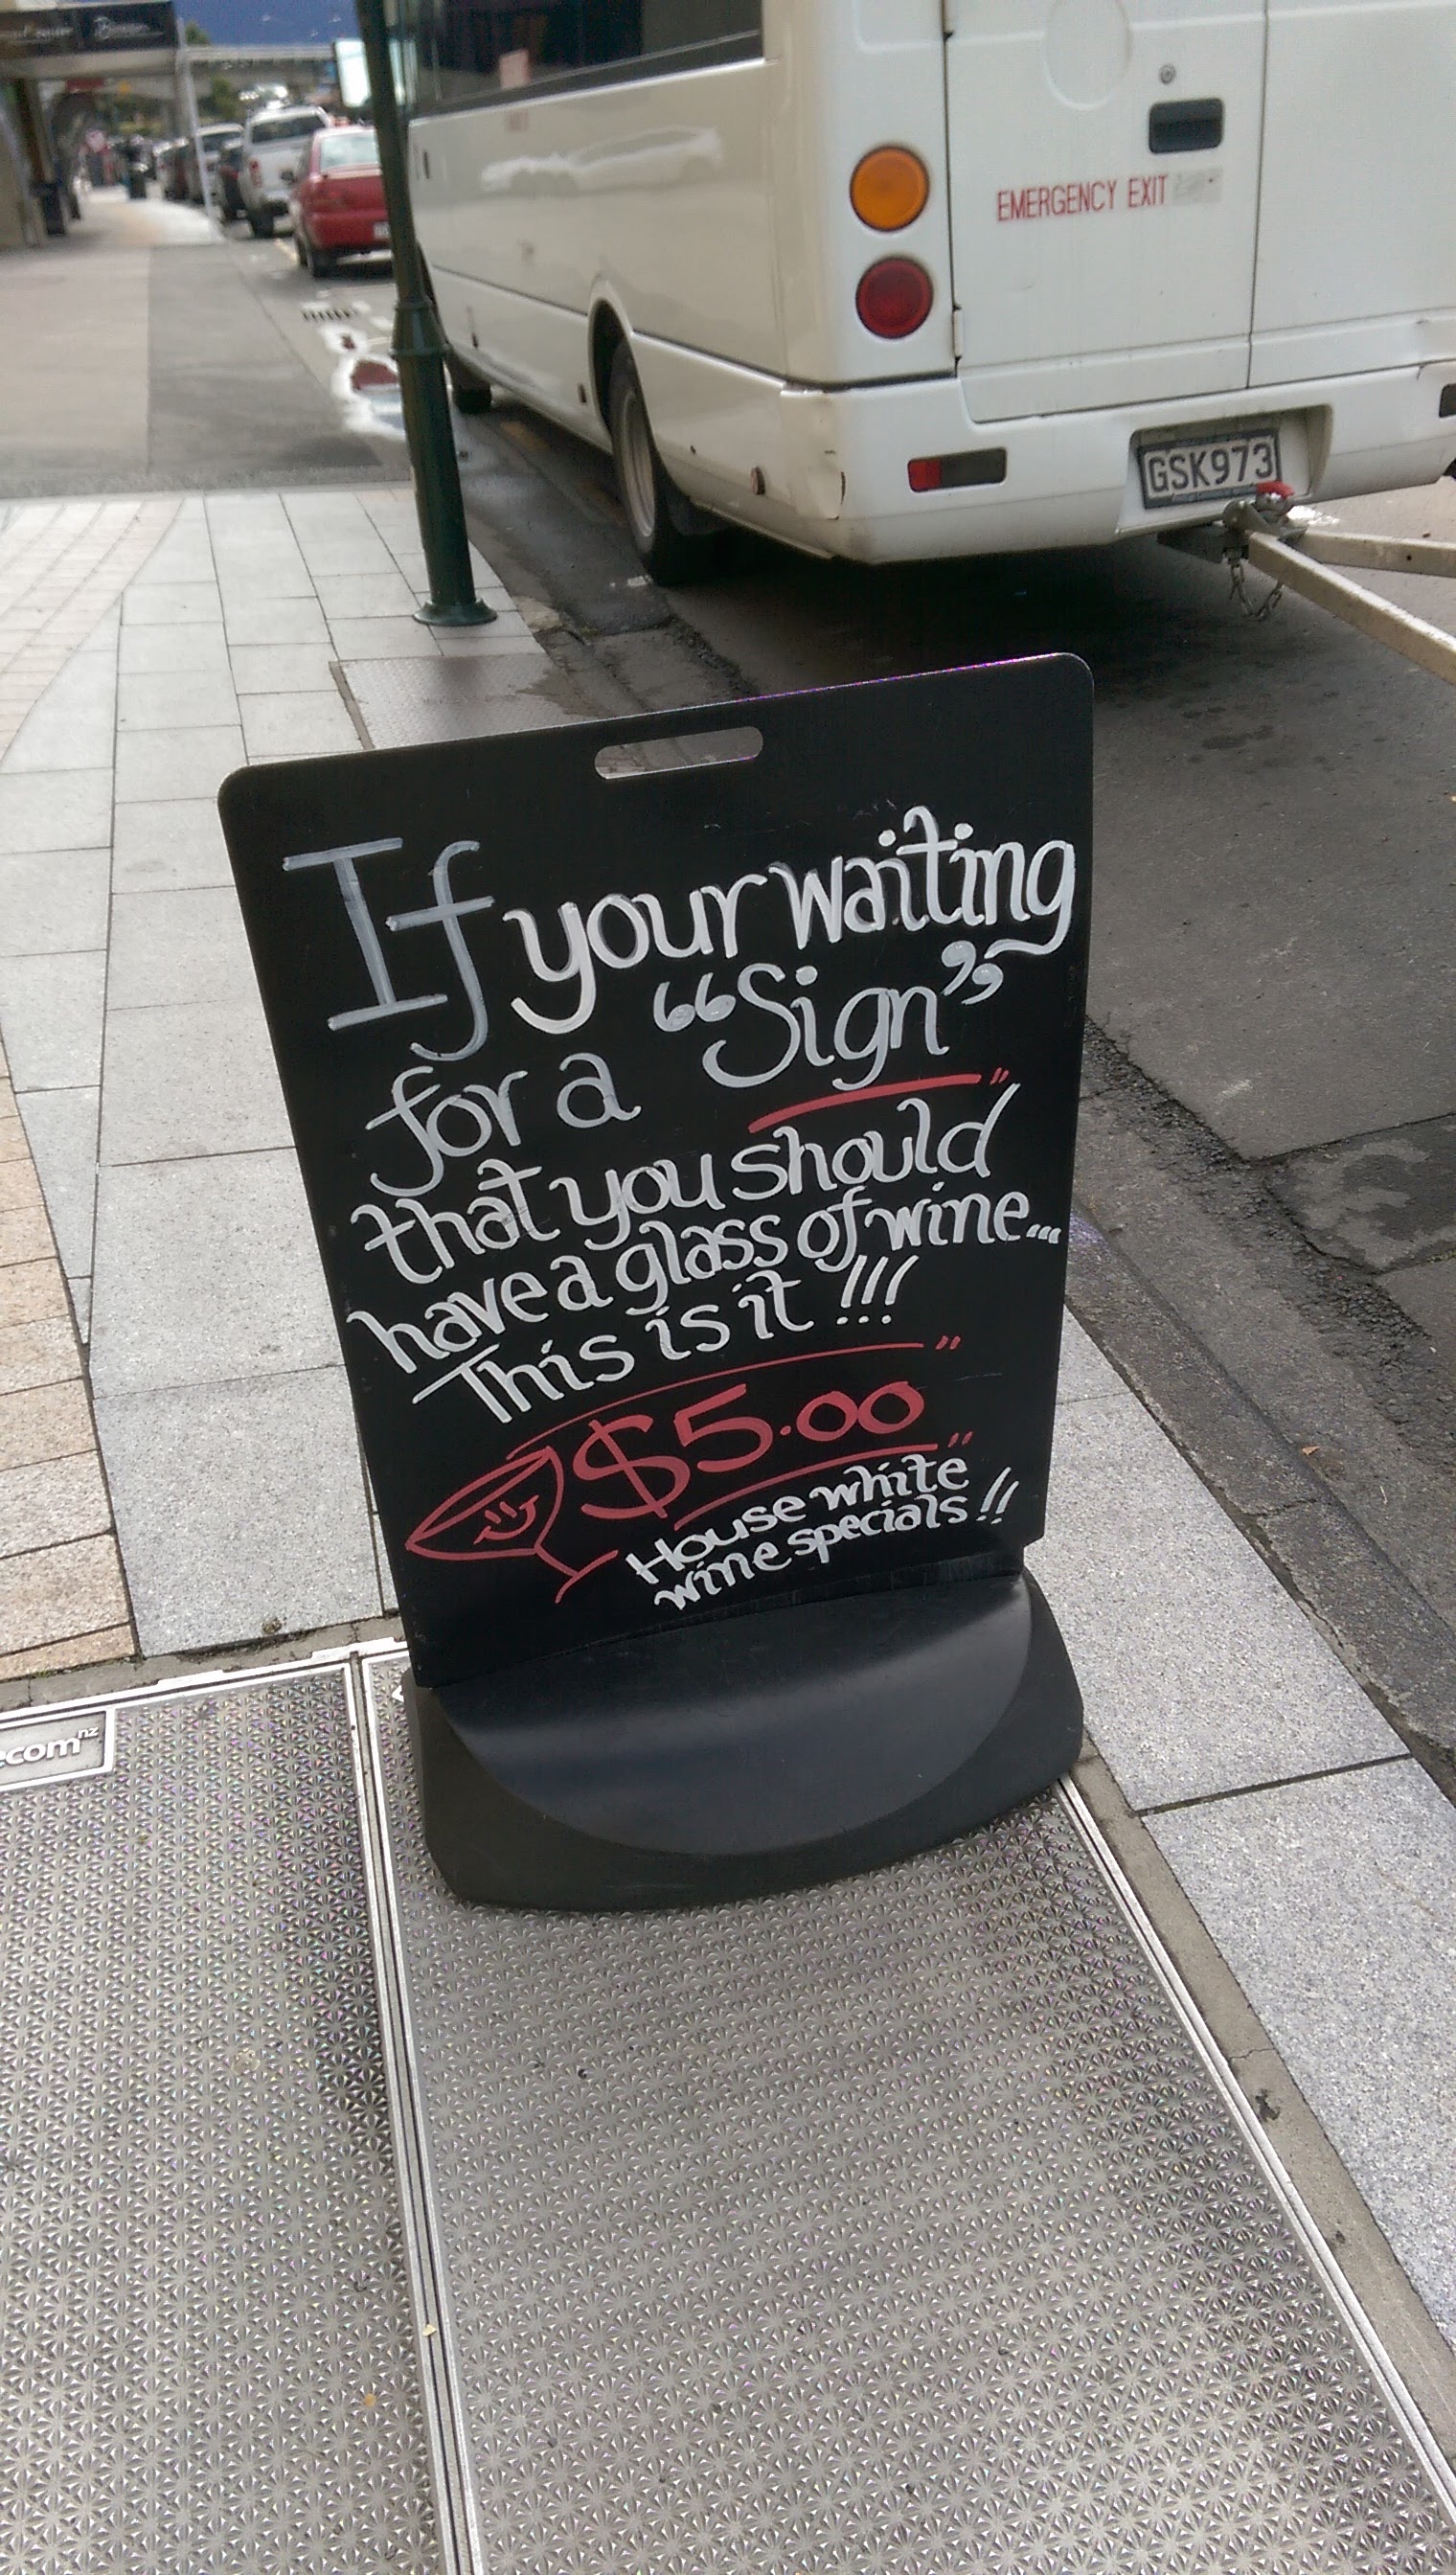 EMERGENCY EXIT
GSK973
If your waiting
for a “Sign”
that you should
have a glass of wine...
This is it !!!
$5.00
House white
wine specials !!
ecom nz